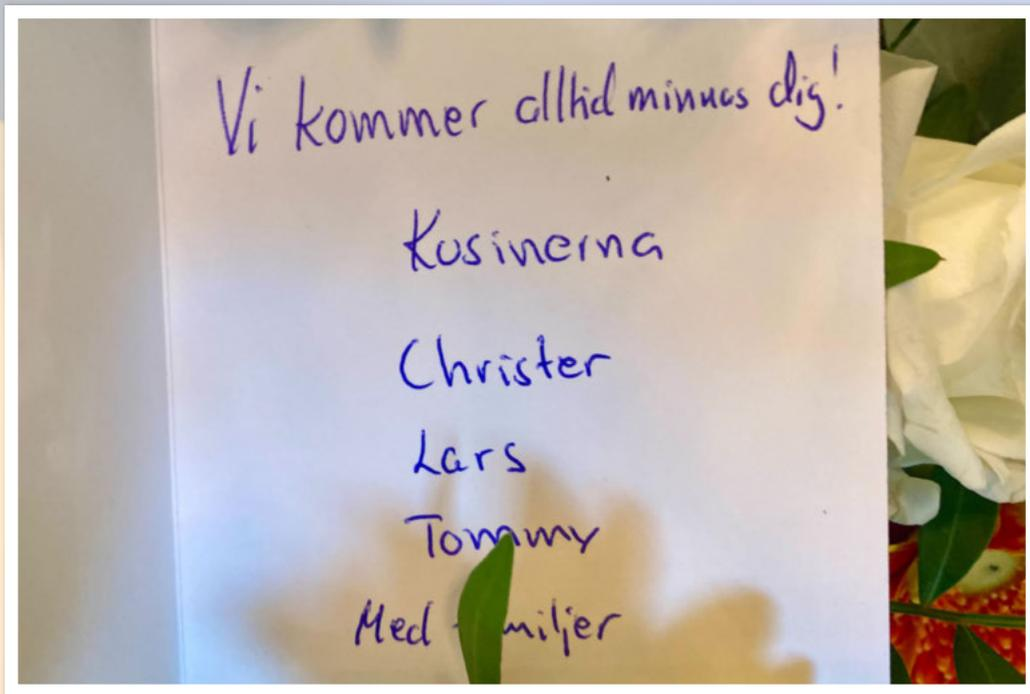 Vi kommer alltid minnas dig!
Kusinerna
Christer
Lars
Tommy
Med familjer